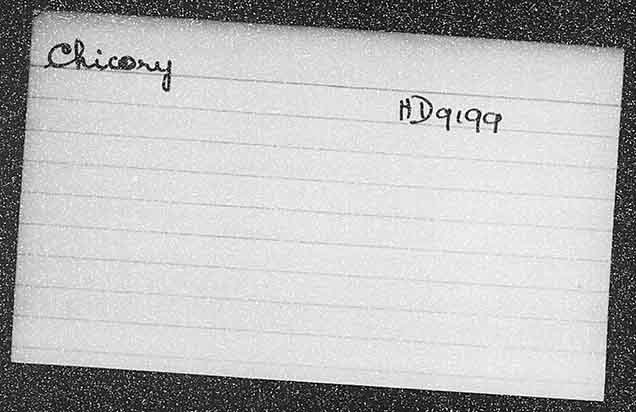 Chicory
HD9199